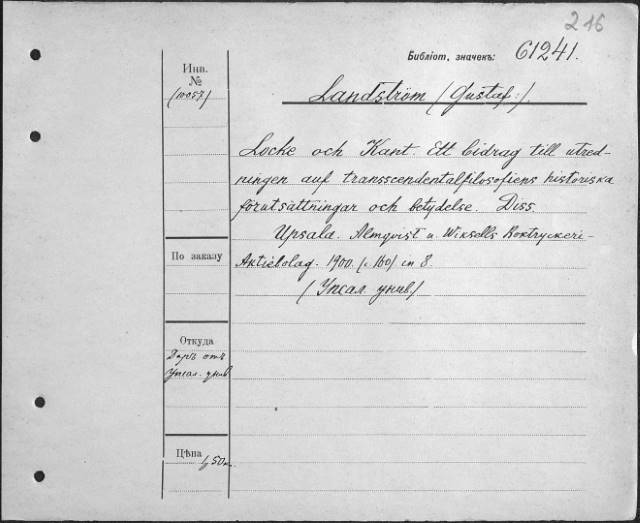 216
Библіот. значекъ: 61241.
Инв.
№
(10057)
Landström (Gustaf:).
Locke och Kant. Ett bidrag till utred-
ningen auf transscendentalfilosofiens historiska
förutsättningar och betydelse. Diss.
Upsala. Almqvist u. Wiksells Boktryckeri-
Aktiebolag. 1900. (160) in 8.
(Упсал. унив.)
По заказу
Откуда
Даръ отъ
Упсал. унив.
Цѣна
50к.